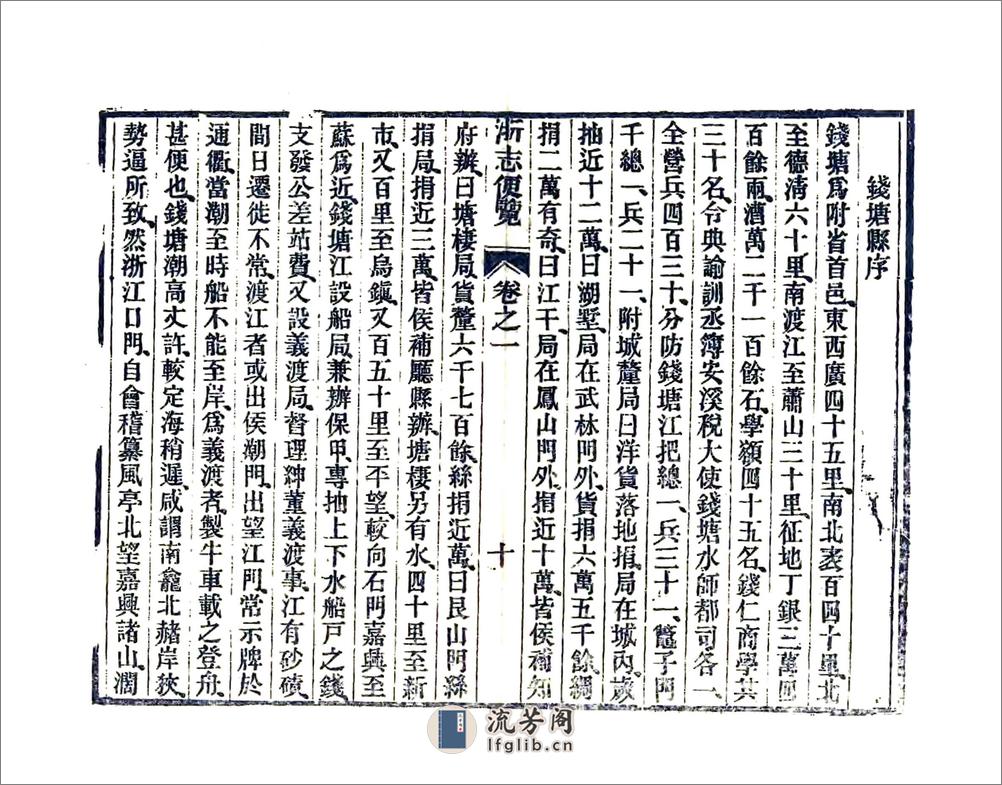 錢塘縣序
錢塘爲附省首邑、東西廣四十五里、南北袤百四十里、北
至德清六十里、南渡江至蕭山三十里、征地丁銀三萬四
百餘兩、漕萬二千一百餘石、學額四十五名、錢仁商學共
三十名、令典諭訓丞簿安溪稅大使錢塘水師都司各一、
全營兵四百三十、分防錢塘江把總一、兵三十一、鼈子門
千總一、兵二十一、附城釐局曰洋貨落地捐、局在城內、歲
抽近十二萬、曰湖墅、局在武林門外、貨捐六萬五千餘、綢
捐二萬有奇、曰江干、局在鳳山門外、捐近十萬、皆侯補知
浙志便覽 卷之一 十
府辦、曰塘棲局、貨釐六千七百餘、絲捐近萬、曰艮山門絲
捐局、捐近三萬、皆侯補廳縣辦、塘棲另有水、四十里至新
市、又百里至烏鎭、又百五十里至平望、較向石門嘉興至
蘇爲近、錢塘江設船局、兼辦保甲、專抽上下水船戸之錢
支發公差站費、又設義渡局、督理紳董義渡事、江有砂磧
間日遷徙不常、渡江者或出侯潮門、出望江門、常示牌於
通衢、當潮至時船不能至岸、爲義渡者、製牛車載之登舟、
甚便也、錢塘潮高丈許、較定海稍遲、咸謂南龕北赭岸狹、
勢逼所致、然浙江口門、自會稽纂風亭北望嘉興諸山、濶
流芳阁
lfglib.cn